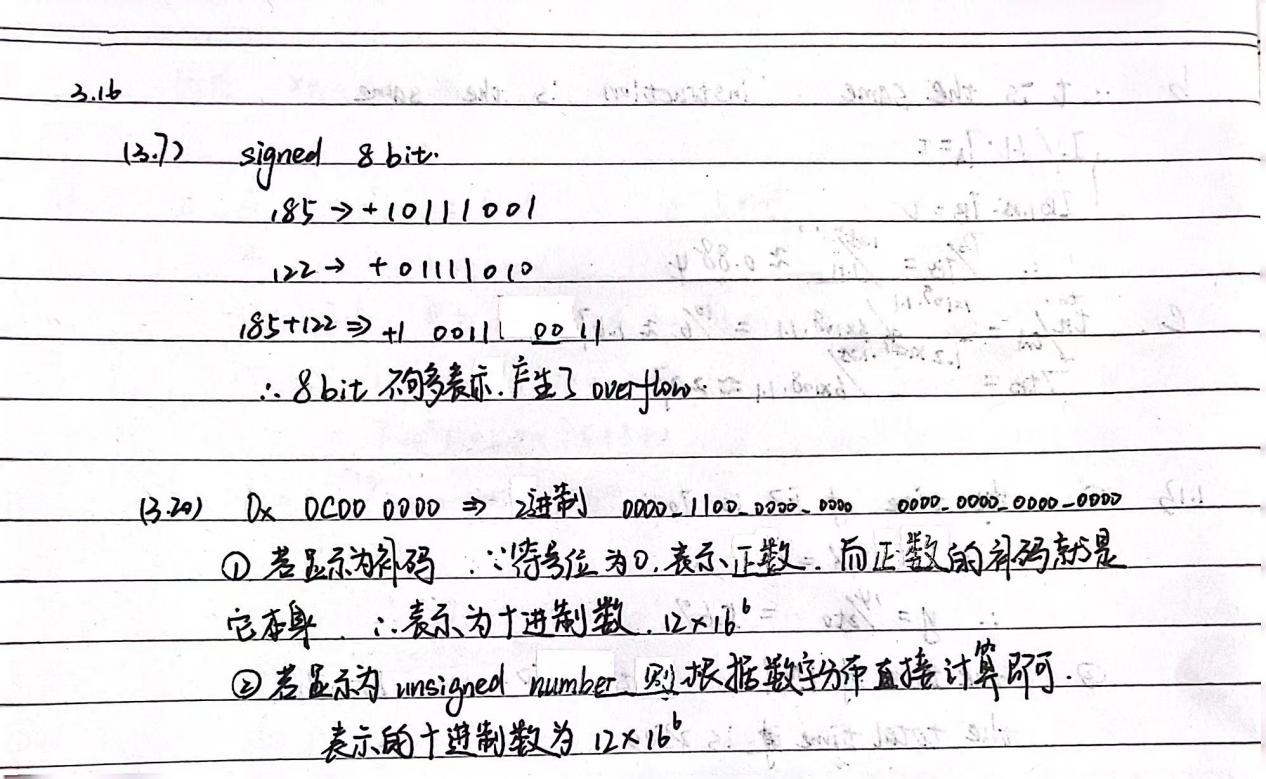 3.16
(3.7) signed 8 bit.
185 → +10111001
122 → +01111010
185+122 ⇒ +1 0011 0011
∴ 8 bit 不够多表示. 产生了 overflow
(3.20) 0x 0C00 0000 ⇒ 2进制 0000_1100_0000_0000 0000_0000_0000_0000
① 若显示为补码 ∵符号位为0. 表示正数. 而正数的补码就是
它本身. ∴表示为十进制数. 12×16⁶
② 若显示为 unsigned number 则根据数字分布直接计算即可.
表示的十进制数为 12×16⁶